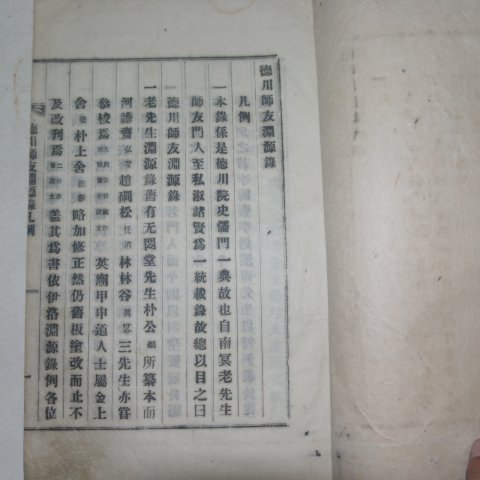 德川師友淵源錄
凡例
一本錄係是德川院史儒門一典故也自南冥老先生
師友門人至私淑諸賢爲一統載錄故總以目之曰
德川師友淵源錄
一老先生淵源錄舊有无悶堂先生朴公絪所纂本而
河謙齋弘度趙礀松任道林林谷眞怤三先生亦嘗
叅校焉 英廟甲申道人士屬金上
舍 朴上舍 略加修正然仍舊板塗改而止不
及改刊焉 盖其爲書依伊洛淵源錄例各位
德川師友淵源錄凡例
一